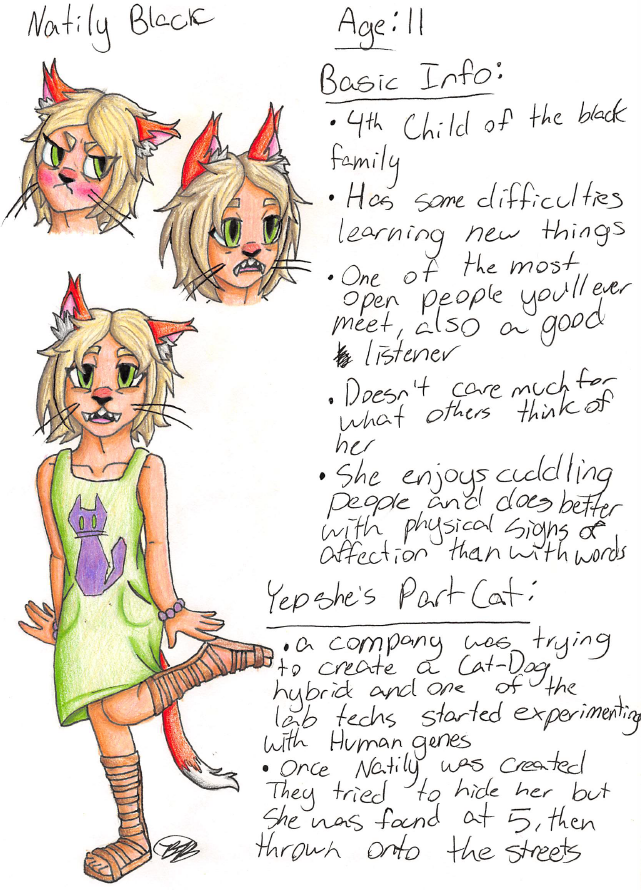 Natily Black
Age: 11
Basic Info:
• 4th Child of the black
family
• Has some difficulties
learning new things
• One of the most
open people you'll ever
meet, also a good
listener
• Doesn't care much for
what others think of
her
• She enjoys cuddling
people and does better
with physical signs of
affection than with words
Yep she's Part Cat:
• a company was trying
to create a Cat-Dog
hybrid and one of the
lab techs started experimenting
with Human genes
• Once Natily was created
They tried to hide her but
She was found at 5, then
thrown onto the streets